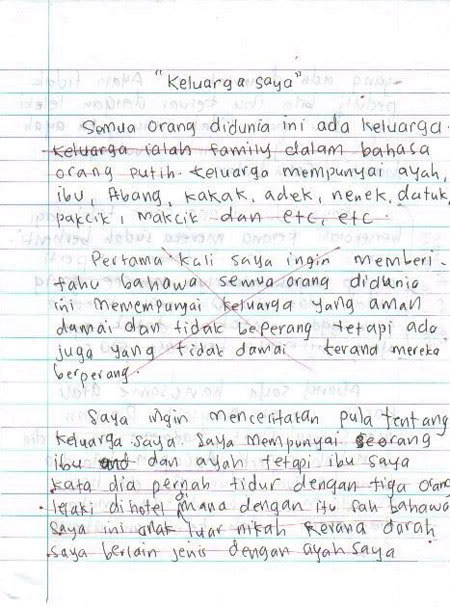 "Keluarga saya"
Semua orang didunia ini ada keluarga.
Keluarga ialah family dalam bahasa
orang putih. Keluarga mempunyai ayah,
ibu, Abang, kakak, adek, nenek, datuk,
pakcik, makcik dan etc, etc.
Pertama kali saya ingin memberi-
tahu bahawa semua orang didunia
ini memempunyai keluarga yang aman
damai dan tidak beperang tetapi ada
juga yang tidak damai kerana mereka
berperang.
Saya ingin menceritakan pula tentang
keluarga saya Saya mempunyai seorang
ibu and dan ayah tetapi ibu saya
kata dia pernah tidur dengan tiga orang
lelaki dihotel mana dengan itu sah bahawa
saya ini anak luar nikah kerana darah
saya berlain jenis dengan ayah saya